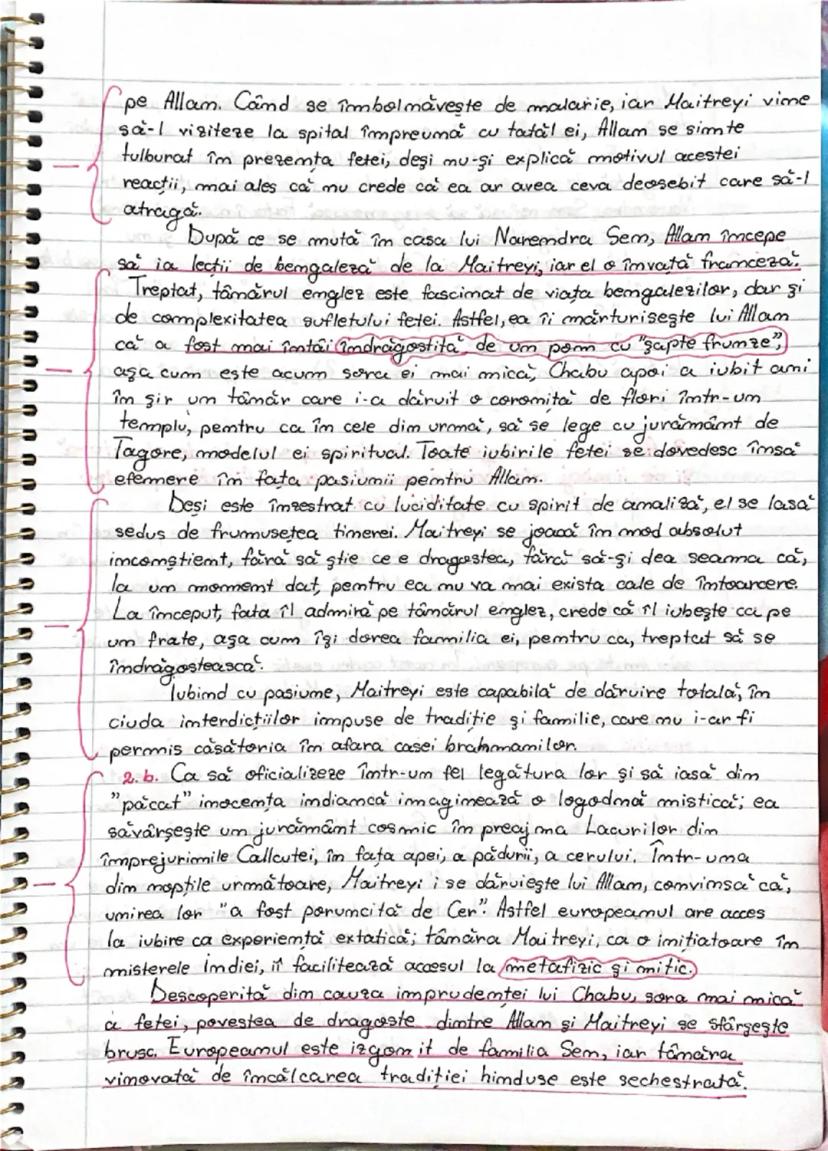 pe Allam. Când se îmbolmăvește de malarie, iar Maitreyi vine
să-l viziteze la spital împreună cu tatăl ei, Allan se simte
tulburat în prezența fetei, deși nu-și explică motivul acestei
reacții, mai ales că nu crede că ea ar avea ceva deosebit care să-l
atragă.
După ce se mută în casa lui Narendra Sem, Allan începe
să ia lecții de bengaleză de la Maitreyi, iar el o învață franceza.
Treptat, tânărul englez este fascinat de viața bengalezilor, dar și
de complexitatea sufletului fetei. Astfel, ea îi mărturisește lui Allan
că a fost mai întâi îndrăgostită de un pom cu "șapte frunze",
așa cum este acum sora ei mai mică, Chabu apoi a iubit ani
în șir un tânăr care i-a dăruit o coroniță de flori într-un
templu, pentru ca în cele din urmă, să se lege cu jurământ de
Tagore, modelul ei spiritual. Toate iubirile fetei se dovedesc însă
efemere în fața pasiunii pentru Allan.
Deși este înzestrat cu luciditate cu spirit de analiză, el se lasă
sedus de frumusețea tinerei. Maitreyi se joacă în mod absolut
inconștient, fără să știe ce e dragostea, fără să-și dea seama că,
la un moment dat, pentru ea nu va mai exista cale de întoarcere.
La început, fata îl admiră pe tânărul englez, crede că îl iubește ca pe
un frate, așa cum își dorea familia ei, pentru ca, treptat să se
îndrăgostească.
Iubind cu pasiune, Maitreyi este capabilă de dăruire totală, în
ciuda interdicțiilor impuse de tradiție și familie, care nu i-ar fi
permis căsătoria în afara casei brahmanilor.
2.b. Ca să oficializeze într-un fel legătura lor și să iasă din
"păcat" inocența indiancă imaginează o logodnă mistică; ea
săvârșește un jurământ cosmic în preajma Lacurilor din
împrejurimile Callcutei, în fața apei, a pădurii, a cerului. Într-una
din nopțile următoare, Maitreyi i se dăruiește lui Allan, convinsă că,
unirea lor "a fost poruncită de Cer". Astfel europeanul are acces
la iubire ca experiență extatică; tânăra Maitreyi, ca o inițiatoare în
misterele Indiei, îi facilitează accesul la metafizic și mitic.
Descoperită din cauza imprudenței lui Chabu, sora mai mică
a fetei, povestea de dragoste dintre Allan și Maitreyi se sfârșește
brusc. Europeanul este izgonit de familia Sen, iar tânăra
vinovată de încălcarea tradiției hinduse este sechestrată.